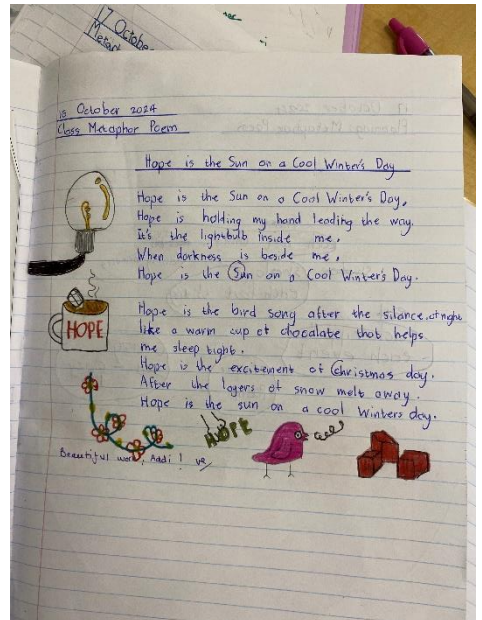 17 October
Metaph
15 October 2024
Class Metaphor Poem
Hope is the Sun on a Cool Winter's Day
Hope is the Sun on a Cool Winter's Day,
Hope is holding my hand leading the way.
It's the lightbulb inside me,
When darkness is beside me,
Hope is the Sun on a Cool Winter's Day.
HOPE
Hope is the bird song after the silance of night
like a warm cup of chocalate that helps
me sleep tight.
Hope is the excitement of Christmas day.
After the layers of snow melt away.
Hope is the sun on a cool winters day.
HOPE
Beautiful work, Addi!